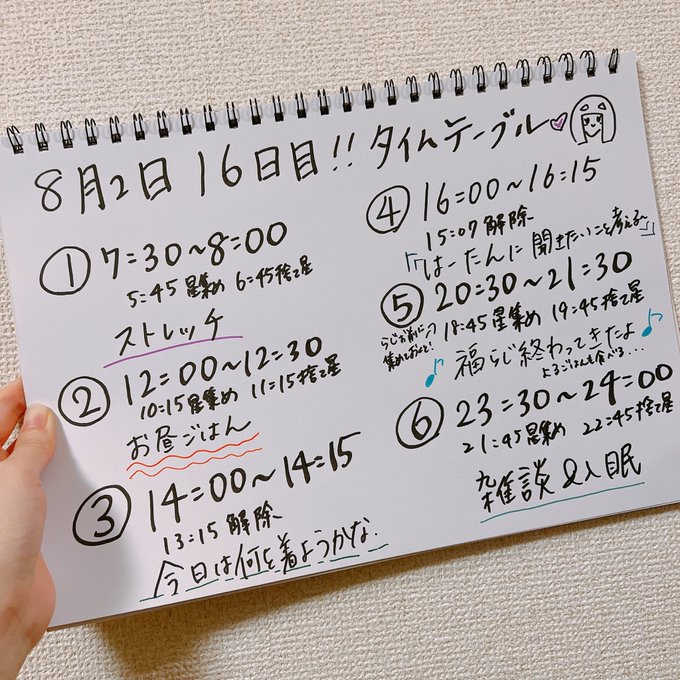 8月2日 16日目!! タイムテーブル
① 7:30~8:00
5:45 星集め 6:45 捨て星
ストレッチ
② 12:00~12:30
10:15 星集め 11:15 捨て星
お昼ごはん
③ 14:00~14:15
13:15 解除
今日は何を着ようかな
④ 16:00~16:15
15:07 解除
「はーたんに聞きたいこと考える〜」
⑤ 20:30~21:30
らじお前に1つ集めておいて!
18:45 星集め 19:45 捨て星
♪ 福らじ終わってきたよ ♪
よるごはんも食べる...
⑥ 23:30~24:00
21:45 星集め 22:45 捨て星
雑談&入眠